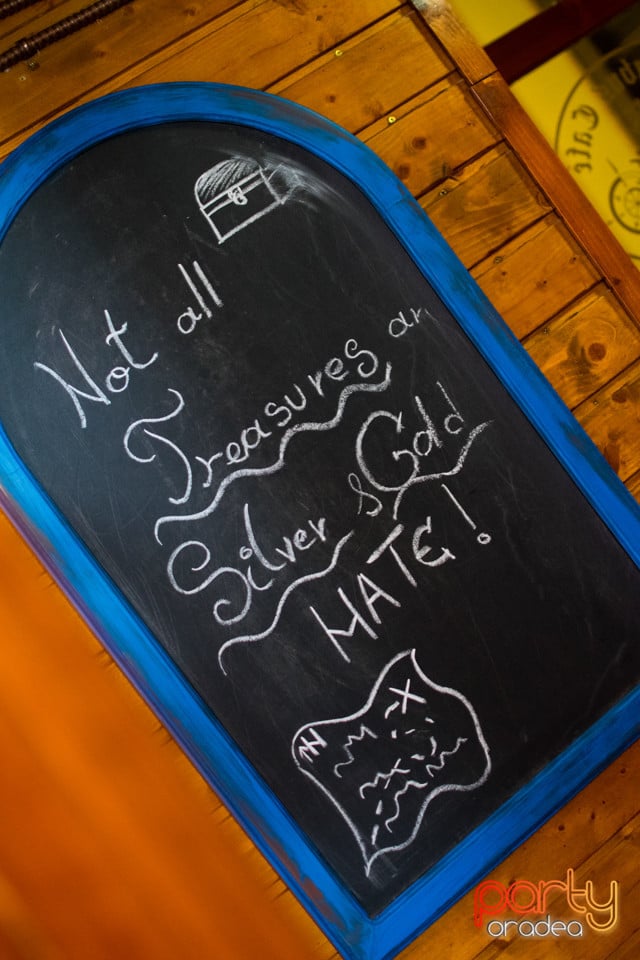 Not all
Treasures ar
Silver & Gold
MATE!
X
N
Cafe
party
oradea